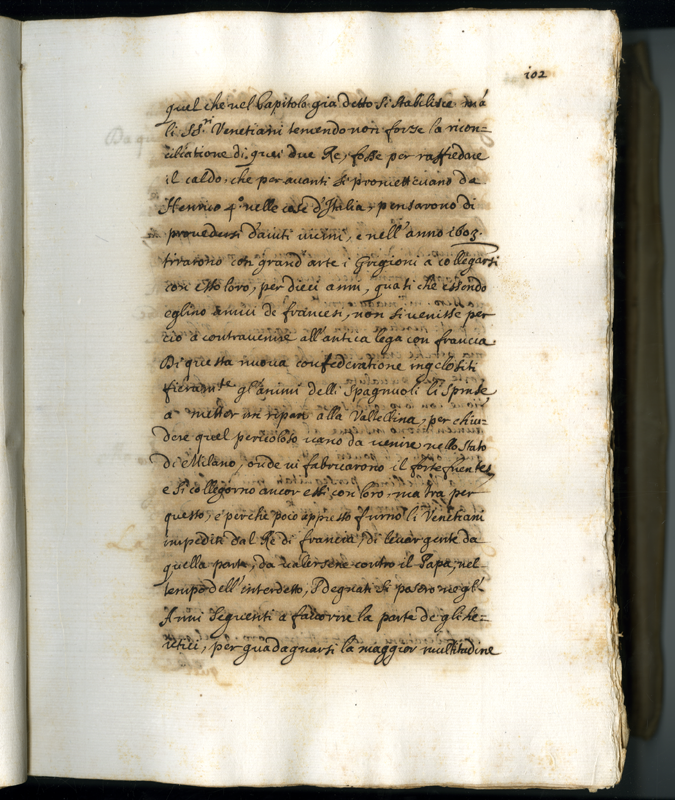 102
quel che nel Capitolo gia detto si stabilisce mà
li SS.ri Venetiani temendo non forse la ricon=
ciliatione di quei due Re, fosse per raffredare
il caldo, che per auanti si prometteuano da
Henrico 4.o nelle cose d'Italia, pensarono di
prouedersi d'aiuti uicini, e nell'anno 1603.
tirarono con grand'arte i Grigioni a collegarsi
con esso loro, per dieci anni, quasi che essendo
eglino amici de francesi, non si uenisse per
ciò a contrauenire all'antica lega con francia
Di questa nuoua confederatione ingelositi
fieram.te gl'animi delli Spagnuoli li spinse
a metter un ripari alla Valtellina, per chiu=
dere quel pericoloso uano da uenire nello stato
di Milano, onde ui fabricarono il forte fuentes
e si collegorno ancor essi con loro ma tra per
questo, e perche poco appresso furno li Venetiani
impediti dal Re di francia, di leuar gente da
quella parte, da ualersene contro il Papa, nel
tempo dell'interdetto, sdegnati si posero negl'
Anni seguenti a fauorire la parte de gli he=
retici, per guadagnarsi la maggior multitudine